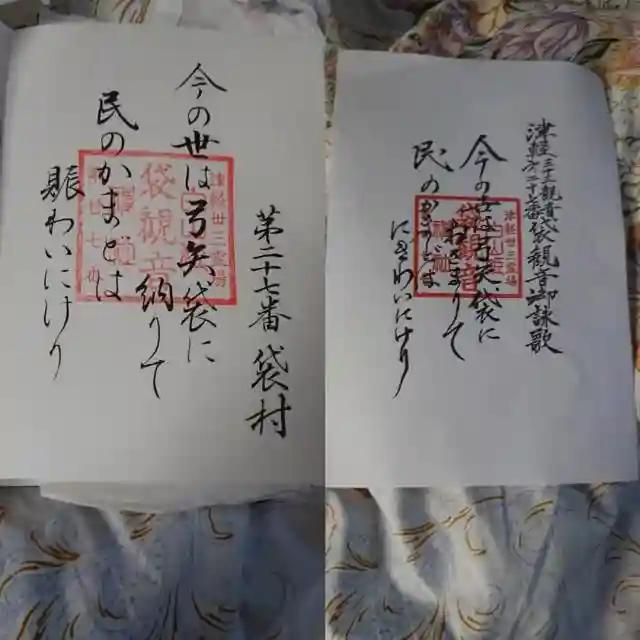 第二十七番 袋村
今の世は弓矢袋に
納りて
民のかまとは
賑わいにけり
袋観音
津軽卅三霊場
津軽三十三観音袋観音御詠歌
今の世は弓矢袋に
おさまりて
民のかまどは
にぎわいにけり
津軽卅三霊場
袋観音